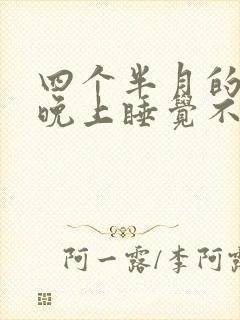 四个半月的
晚上睡觉不
阿一露/李阿露